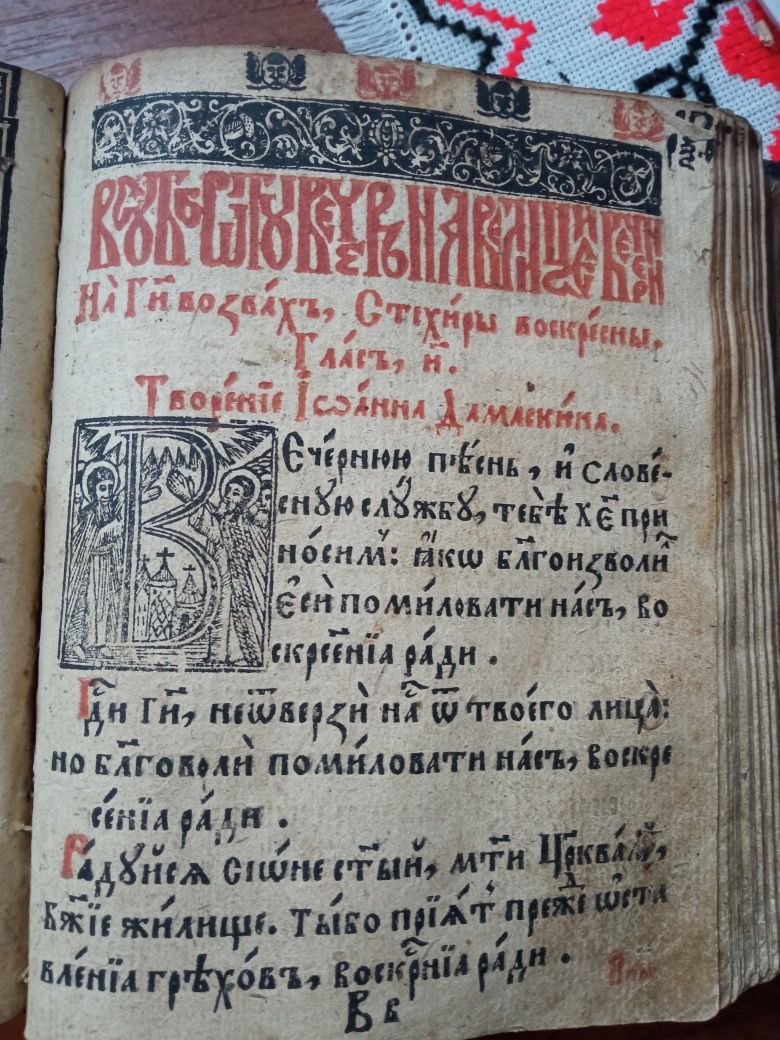 ВСУББѠТУ ВЕЧЕРЪ НАВЕЛИЦѢЙ ВЕЧЕРНИ
На̀ Гиⷭ҇ возва́хъ, Стїхи́ры воскре́сны,
Гла́съ, и҃.
Творе́нїе Іѡа́нна Дамаски́на.
ВЕче́рнюю пѣ́снь, и҆ слове́-
сную слꙋ́жбꙋ, тебѣ̀ хе҃ при
но́симъ: ꙗ҆́кѡ бл҃гоизволи́лъ
є҆сѝ поми́ловати на́съ, во
скрⷭ҇е́нїа ра́ди .
Гдⷭ҇и Ги҃, неѿве́рзѝ наⷭ҇ ѿ твоегѡ лица̀:
но бл҃говолѝ поми́ловати на́съ, воскре
се́нїа ра́ди .
Ра́дꙋйсѧ сїѡ́не ст҃ый, мт҃и црк҃ва́мъ,
бж҃їе жи́лище. Ты́бо прїѧ́тъ пре́жⷣе ѡ҆ста
вле́нїа грѣхо́въ, воскрⷭ҇нїа ра́ди .
Вв